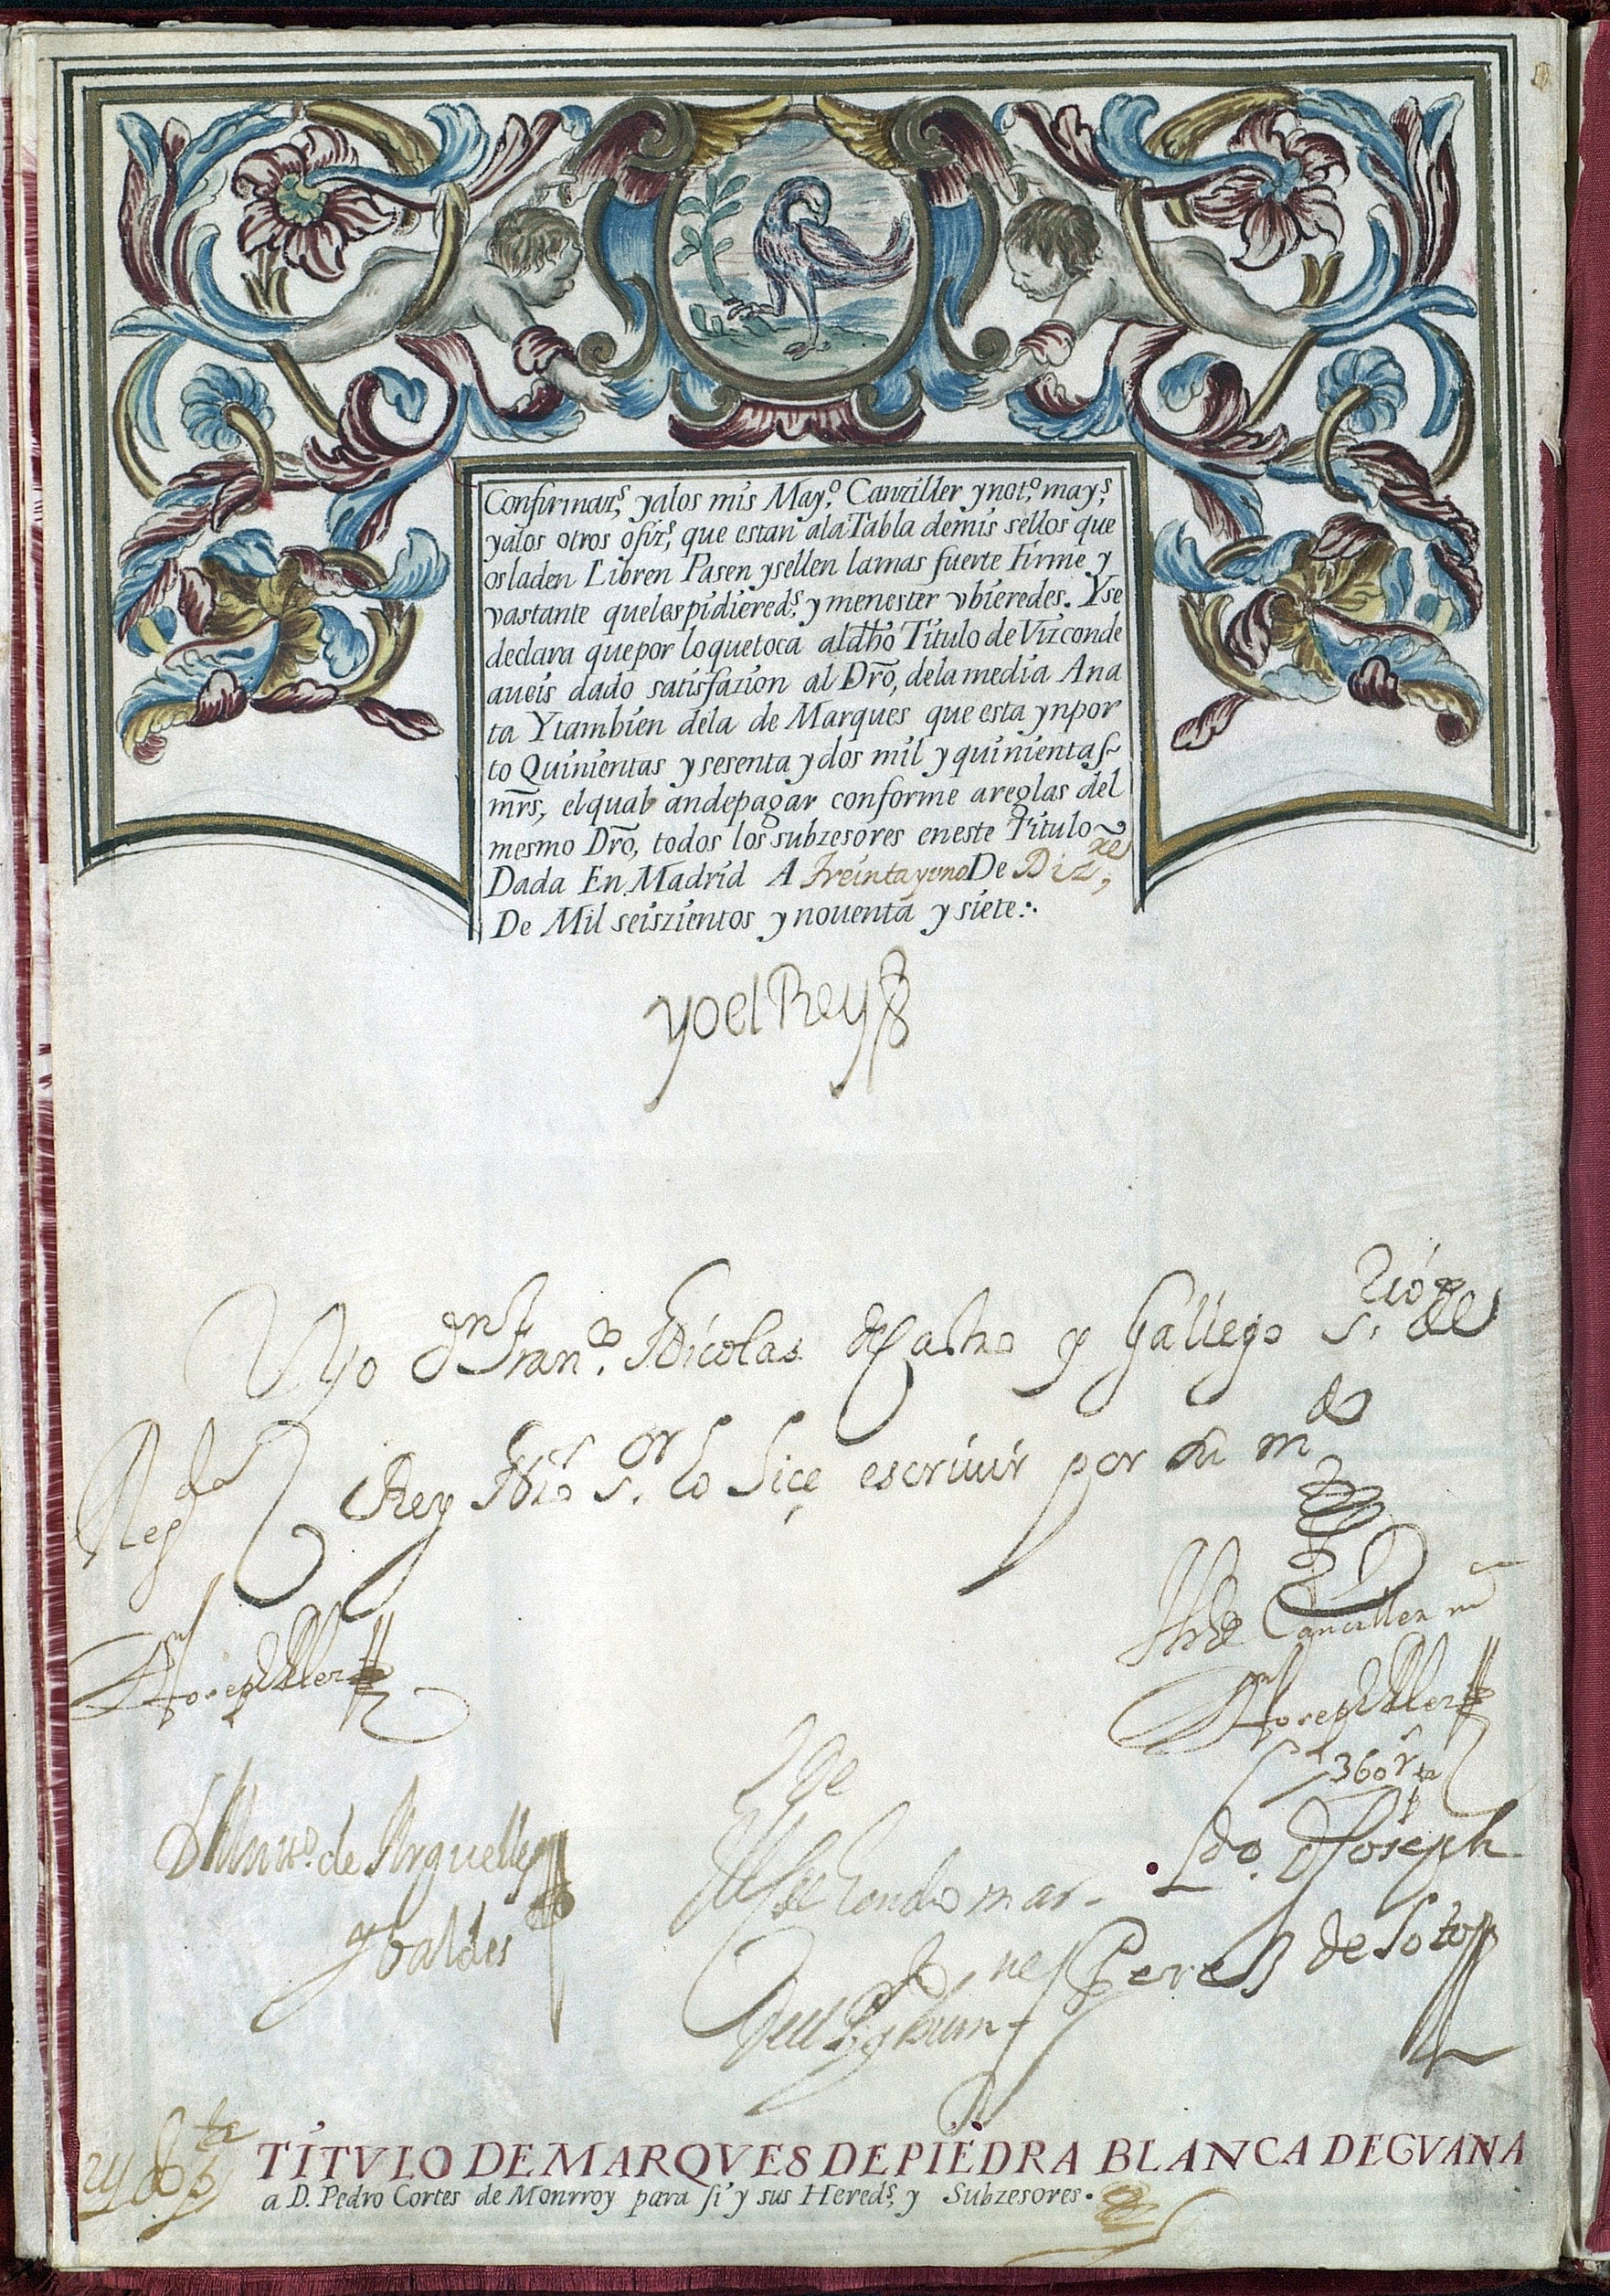 Confirmazs, yalos mis Mayo. Canziller ynoto. mays,
yalos otros ofizs, que estan ala Tabla demis sellos que
osladen Libren Pasen ysellen lamas fuerte Firme y
vastante quelespidiereds, y menester vbieredes. Yse
declara quepor loquetoca aldho Titulo de Vizconde
aueis dado satisfazion al Dro, dela media Ana
ta Ytambien dela de Marques que esta ynpor
to Quinientas y sesenta y dos mil y quinientas
mrs, elqual andepagar conforme areglas del
mesmo Dro, todos los subzesores eneste Titulo
Dada En Madrid A treinta yuno De Dizre,
De Mil seiszientos y nouenta y siete:.
yo el Rey
Yo Dn Franco. Nicolas de Castro y Gallego srio. del
Rey Nro sor. lo hiçe escriuir por su mdo
Regda
Dn Joseph
Dn Joseph
360 rs
de Arguelles
y baldes
Ldo. D Joseph
Perez de Soto
TÍTVLO DE MARQVES DE PIEDRA BLANCA DE GVANA
a D. Pedro Cortes de Monrroy para si y sus Hereds, y Subzesores.